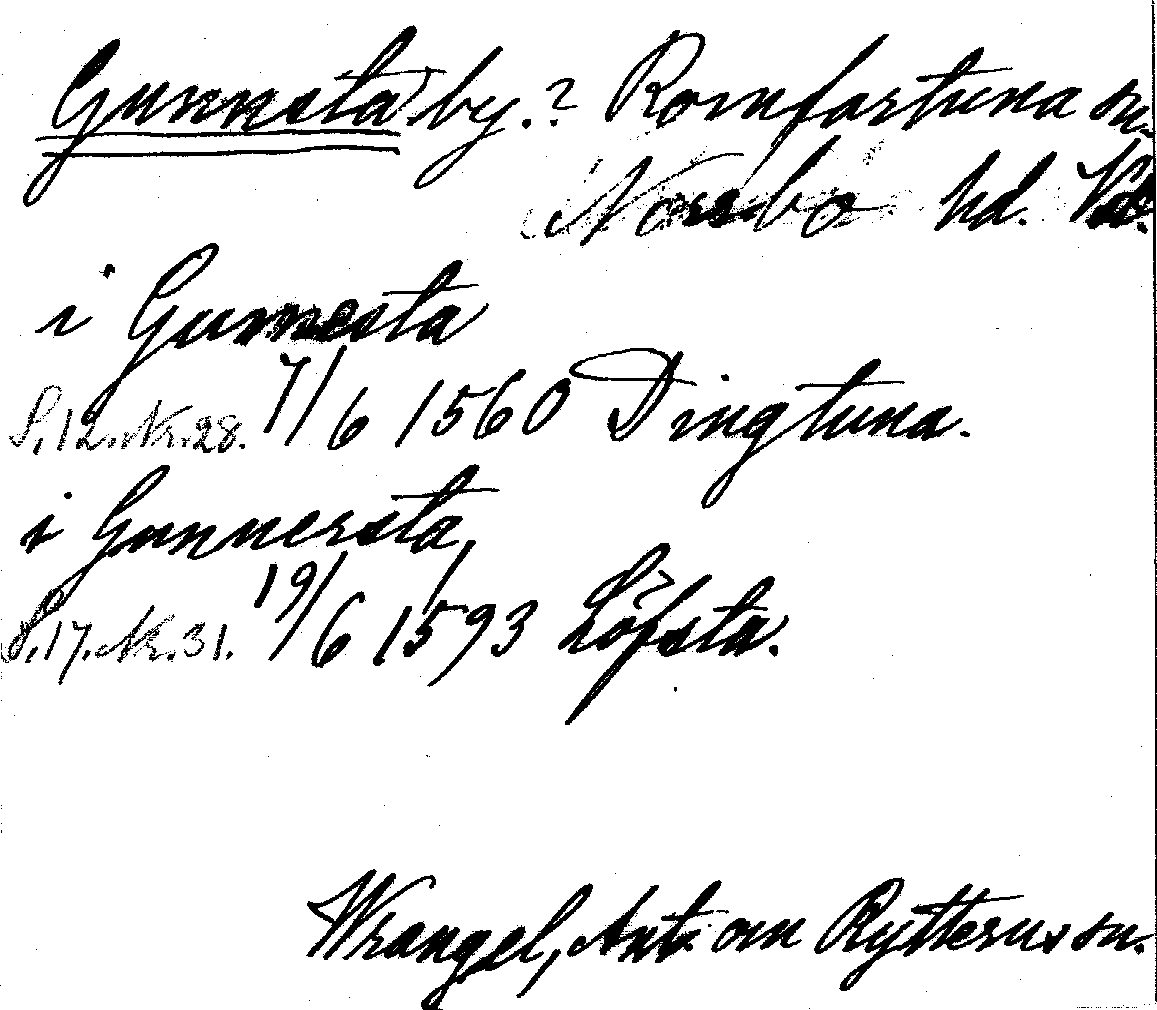 Gunnsta by. ? Romfartuna sn.
Norrbo hd. Vstl.
i Gunnesta
S.12. Nr. 28. 7/6 1560 Dingtuna.
i Gunnersta,
S.17. Nr. 31. 19/6 1593 Löfsta.
Wrangel, Ant. om Rytterns sn.